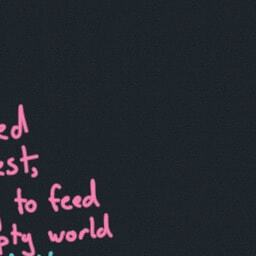 ed
est,
to feed
pty world